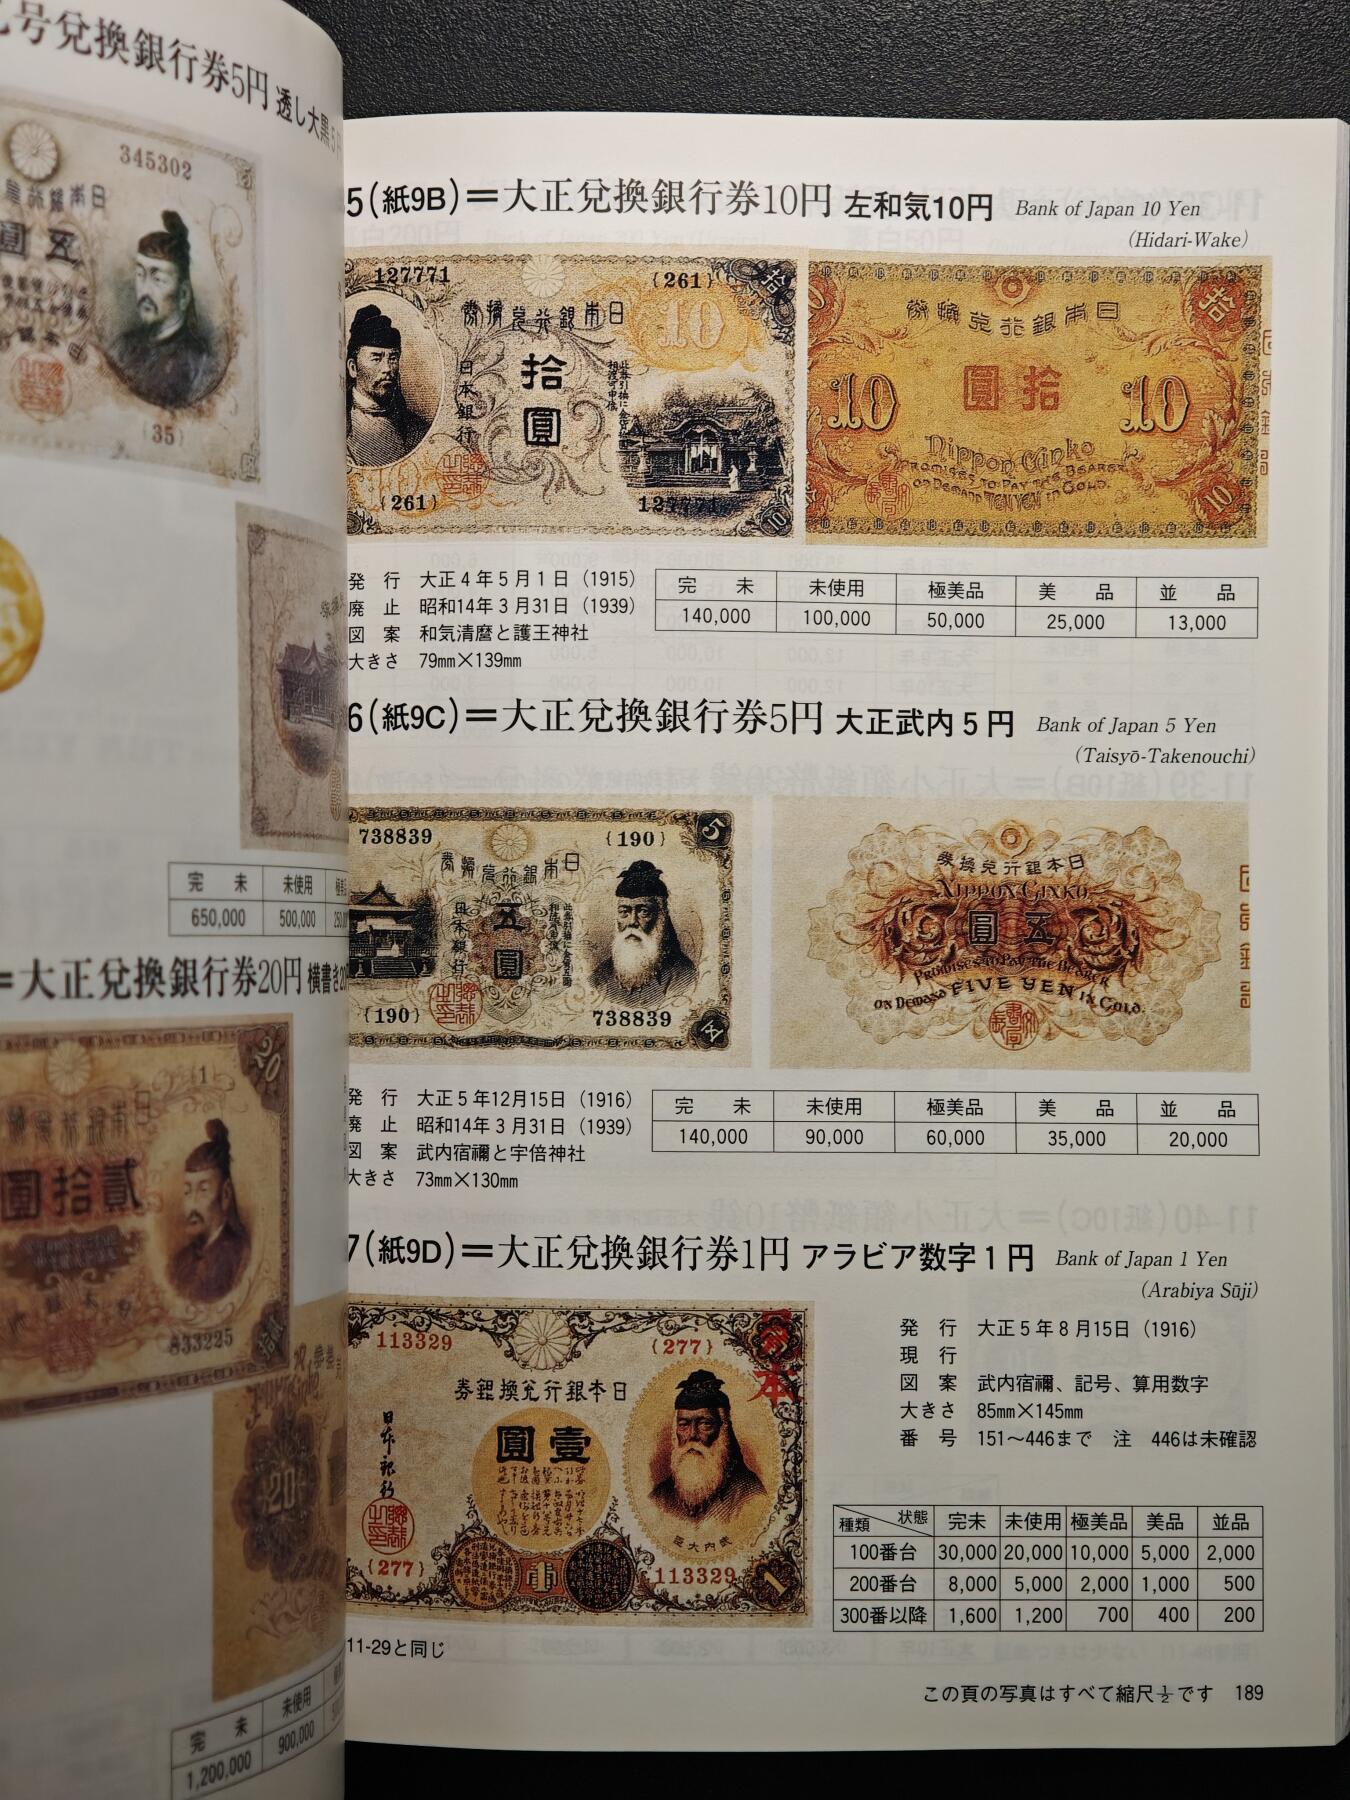 号兌換銀行券5円 透し大黒5
345302
五圓
(35)
完 未 未使用
650,000 500,000
=大正兌換銀行券20円 横書き20
20
(1)
圓拾貳
833225
20
完 未 未使用
1,200,000 900,000
5(紙9B)=大正兌換銀行券10円 左和気10円 Bank of Japan 10 Yen
(Hidari-Wake)
127771 (261)
券換兌行銀本日
10
拾圓
日本銀行
(261) 127771
10
券換兌行銀本日
拾
10 圓拾 10
Nippon Ginko
Promises to Pay the Bearer
on Demand Ten Yen in Gold.
10
発 行 大正4年5月1日(1915)
廃 止 昭和14年3月31日(1939)
図 案 和気清麿と護王神社
大きさ 79mm×139mm
完 未 未使用 極美品 美 品 並 品
140,000 100,000 50,000 25,000 13,000
6(紙9C)=大正兌換銀行券5円 大正武内5円 Bank of Japan 5 Yen
(Taisyō-Takenouchi)
738839 (190) 5
券換兌行銀本日
五圓
日本銀行
(190) 738839
券換兌行銀本日
Nippon Ginko
圓五
Promises to Pay the Bearer
on Demand Five Yen in Gold.
発 行 大正5年12月15日(1916)
廃 止 昭和14年3月31日(1939)
図 案 武内宿禰と宇倍神社
大きさ 73mm×130mm
完 未 未使用 極美品 美 品 並 品
140,000 90,000 60,000 35,000 20,000
7(紙9D)=大正兌換銀行券1円 アラビア数字1円 Bank of Japan 1 Yen
(Arabiya Sūji)
113329 (277)
券換兌銀行本日
圓壹
日本銀行
武内大臣
(277) 113329 1
発 行 大正5年8月15日(1916)
現 行
図 案 武内宿禰、記号、算用数字
大きさ 85mm×145mm
番 号 151~446まで 注 446は未確認
種類 状態 完未 未使用 極美品 美品 並品
100番台 30,000 20,000 10,000 5,000 2,000
200番台 8,000 5,000 2,000 1,000 500
300番以降 1,600 1,200 700 400 200
11-29と同じ
この頁の写真はすべて縮尺½です 189